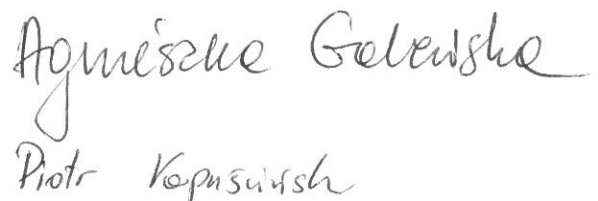 Agnieszka Galewska
Piotr Kapuściński